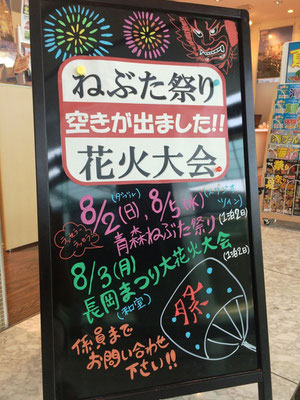 ねぶた祭り
空きが出ました!!
花火大会
(ダブル)
8/2(日)、8/5(水)
ツイン)
青森ねぶた祭り
(1泊2日)
8/3(月)
長岡まつり大花火大会
(和室)
(1泊2日)
係員まで
お問い合わせ
下さい!!
勝